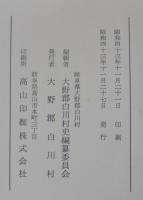 昭和四十三年十一月二十一日　印刷
昭和四十三年十一月二十七日　発行
岐阜県大野郡白川村
編纂者　大野郡白川村史編纂委員会
発行者　大野郡白川村
岐阜県高山市本町三丁目
印刷所　高山印刷株式会社